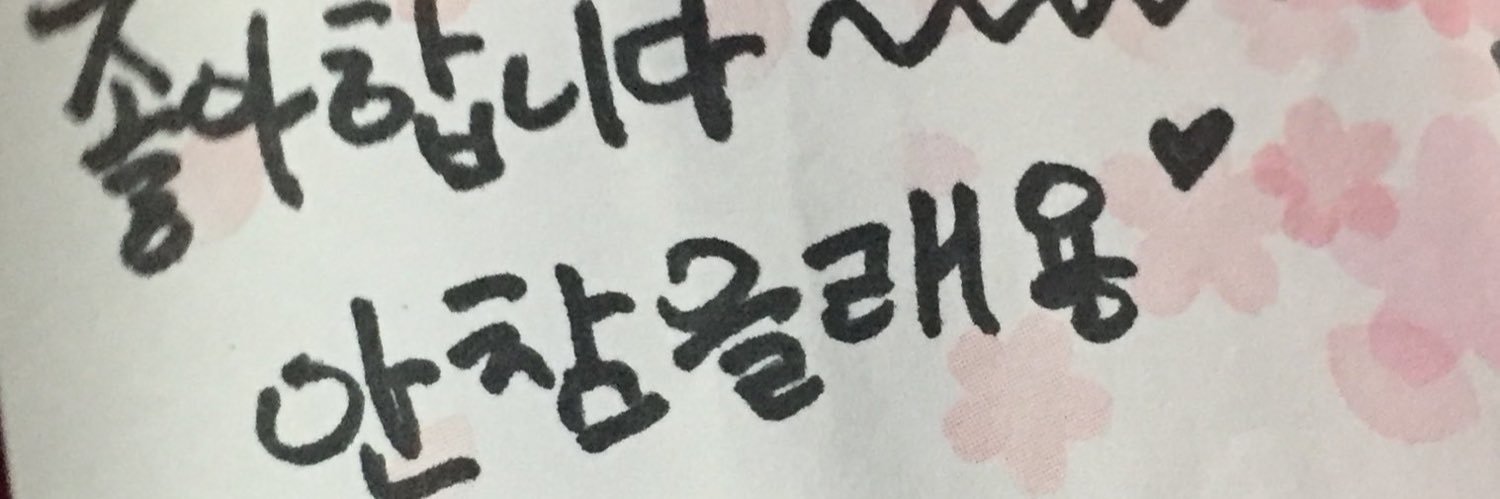 좋아합니다~~~
안참을래용♥